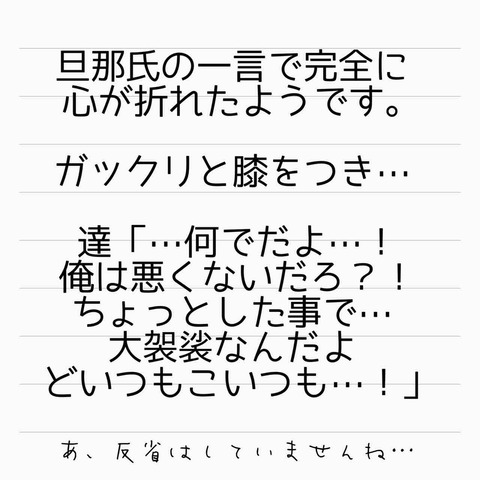 旦那氏の一言で完全に
心が折れたようです。
ガックリと膝をつき…
達「…何でだよ…！
俺は悪くないだろ？！
ちょっとした事で…
大袈裟なんだよ
どいつもこいつも…！」
あ、反省はしていませんね…